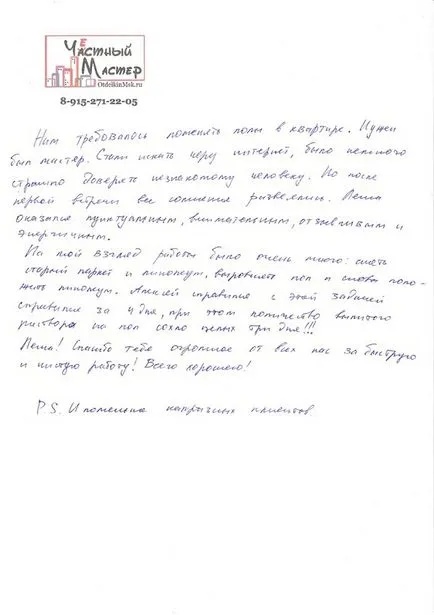 Честный
Мастер
OtdelkinMsk.ru
8-915-271-22-05
Нам требовалось поменять полы в квартире. Нужен
был мастер. Стали искать через интернет, было немного
страшно доверять незнакомому человеку. Но после
первой встречи все сомнения развеялись. Леша
оказался пунктуальным, внимательным, отзывчивым и
энергичным.
На мой взгляд работы было очень много: снять
старый паркет и линолеум, выровнять пол и снова поло-
жить линолеум. Алексей справился с этой задачей
справился за 4 дня, при этом количество вылитого
раствора на пол сохло целых три дня!!!
Леша! Спасибо тебе огромное от всех нас за быструю
и чистую работу! Всего хорошего!
P.S. И поменьше капризных клиентов